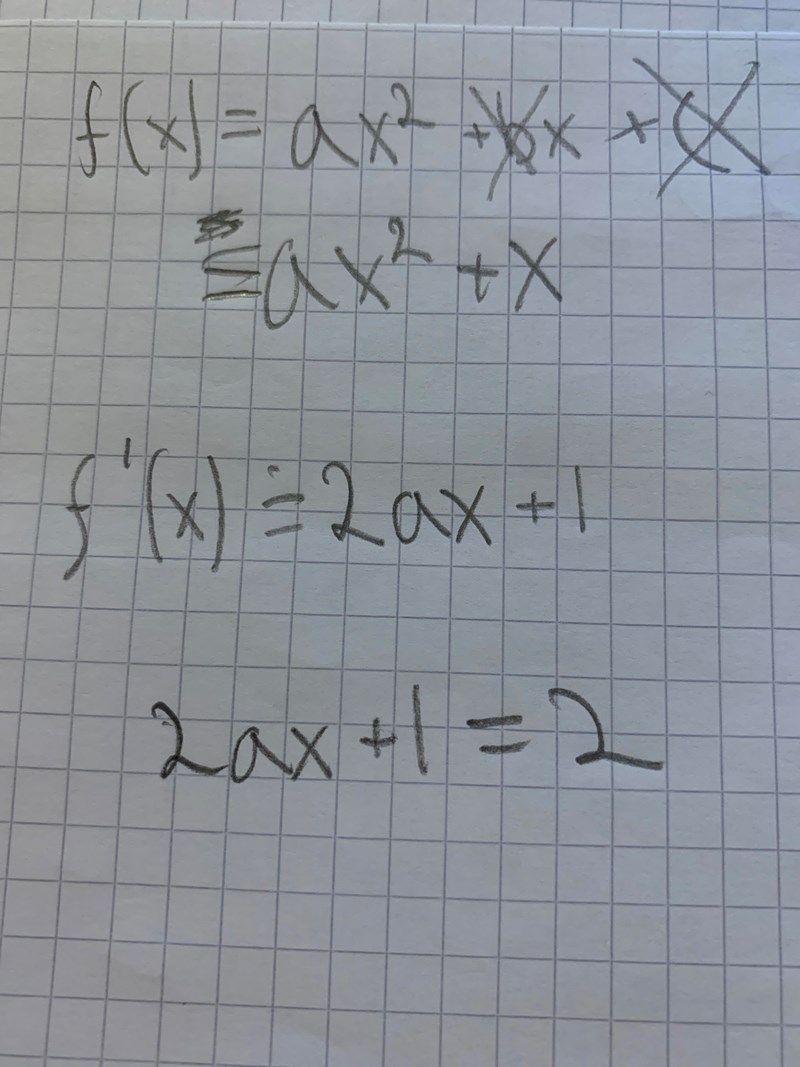 f(x) = ax² + bx + c
= ax² + x
f'(x) = 2ax + 1
2ax + 1 = 2